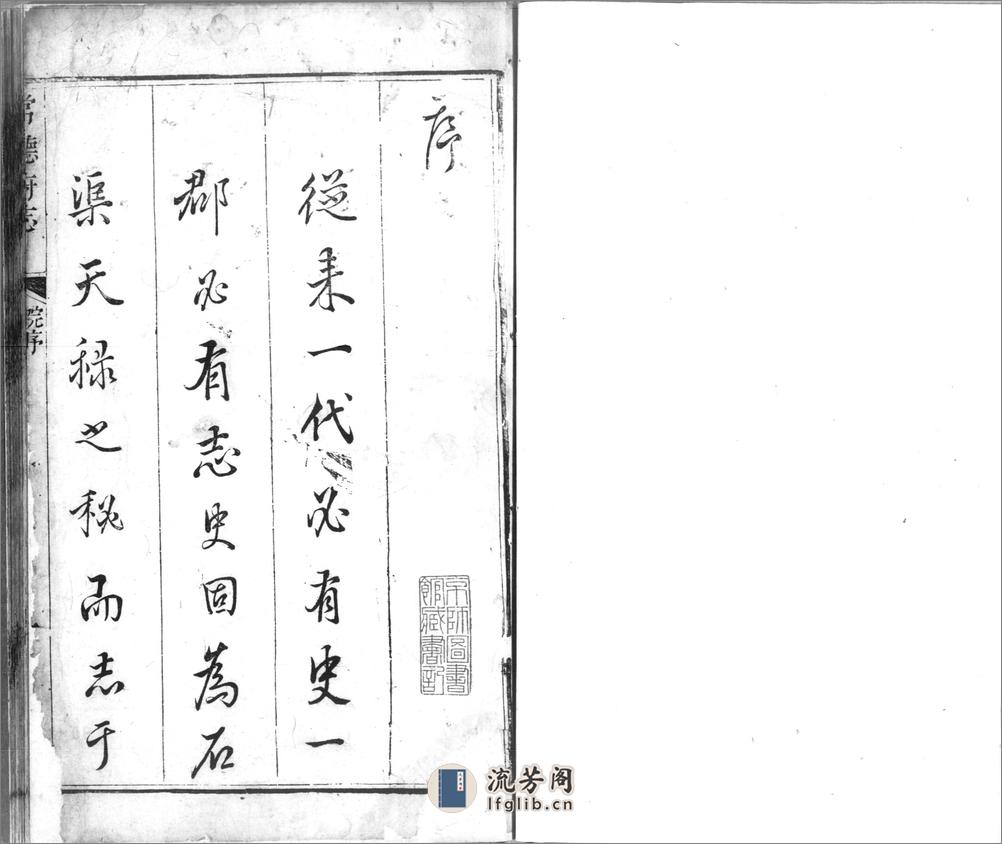 序
從来一代必有史一
郡必有志史固為石
渠天禄之秘而志于
常德府志
院序
京師圖書
館藏書記
流芳阁
lfglib.cn